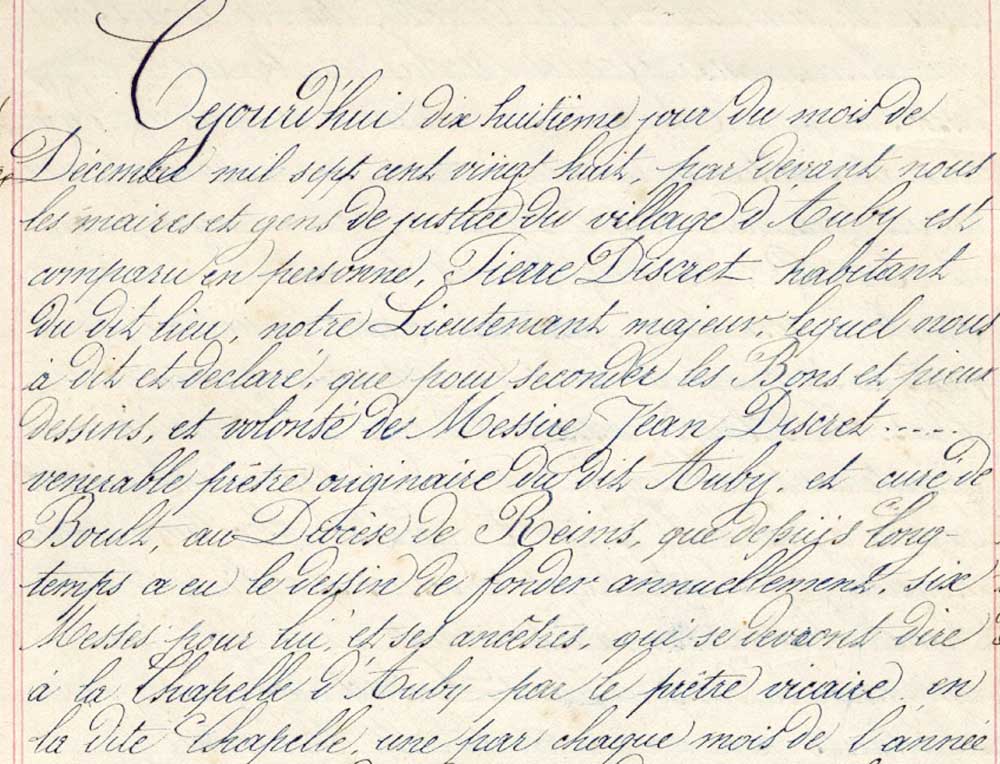 Cejourd'hui dix huitième jour du mois de
Décembre mil sept cent vingt huit, par devant nous
les maires et gens de justice du village d'Auby est
comparu en personne, Pierre Discret habitant
du dit lieu, notre Lieutenant majeur, lequel nous
à dit et déclaré, que pour seconder les Bons et pieux
dessins, et volonté de Messire Jean Discret.....
venerable prêtre originaire du dit Auby, et curé de
Boult, au Diocèse de Reims, que depuis long-
temps a eu le dessin de fonder annuellement, six
Messes pour lui, et ses ancêtres, qui se devront dire
à la Chapelle d'Auby par le prêtre vicaire, en
la dite Chapelle, une par chaque mois de l'année